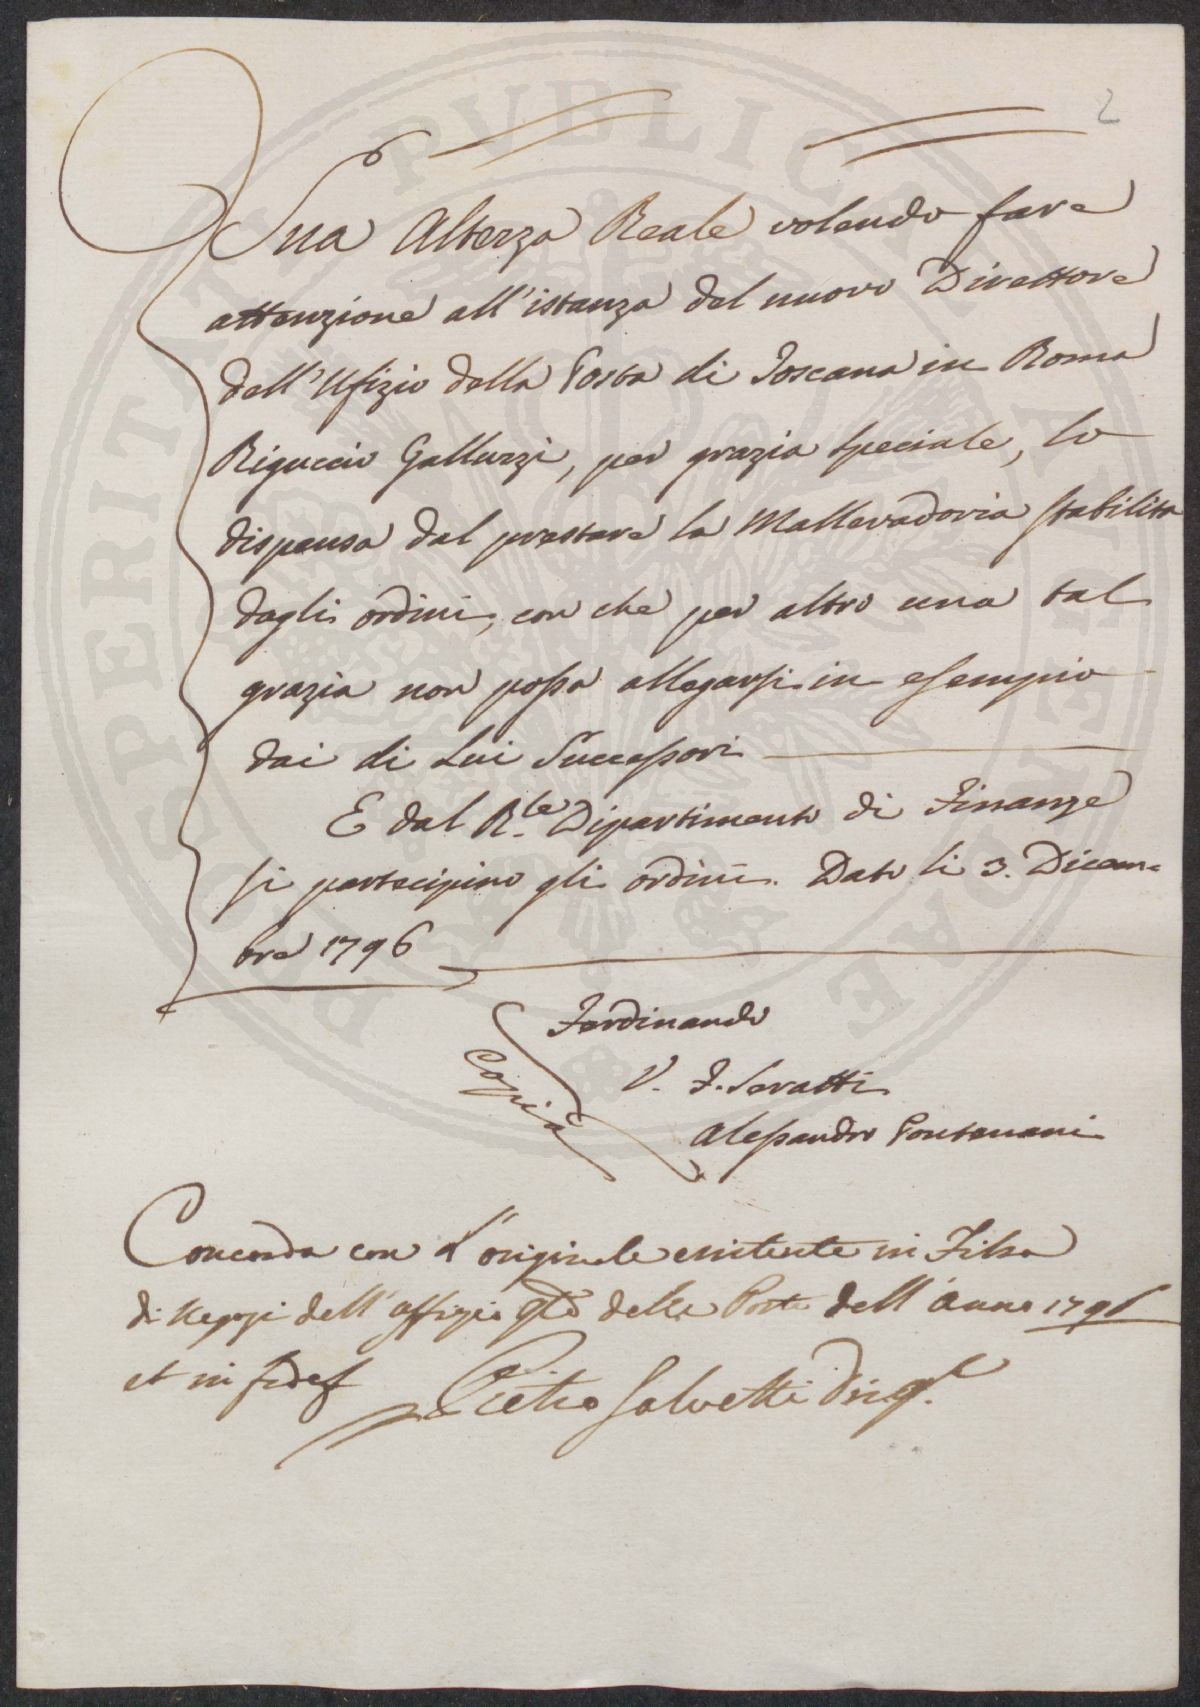 2
Sua Altezza Reale volendo fare
attenzione all'istanza del nuovo Direttore
dell'Ufizio della Posta di Toscana in Roma
Riguccio Galluzzi, per grazia speciale, lo
dispensa dal prestare la Mallevadoria stabilita
dagli ordini, con che per altro una tal
grazia non possa allegarsi in esempio
dai di Lui Successori
E dal R.le Dipartimento di Finanze
si partecipino gli ordini. Dato li 3. Dicem=
bre 1796
Ferdinando
Copia
V. F. Seratti
Alessandro Pontenani
Concorda con l'originale esistente in Filza
di Negozi dell'Offizio Gle delle Poste dell'Anno 1796
et in fede
Pietro Salvetti
PROSPERITATI PUBLICAE AUGENDAE